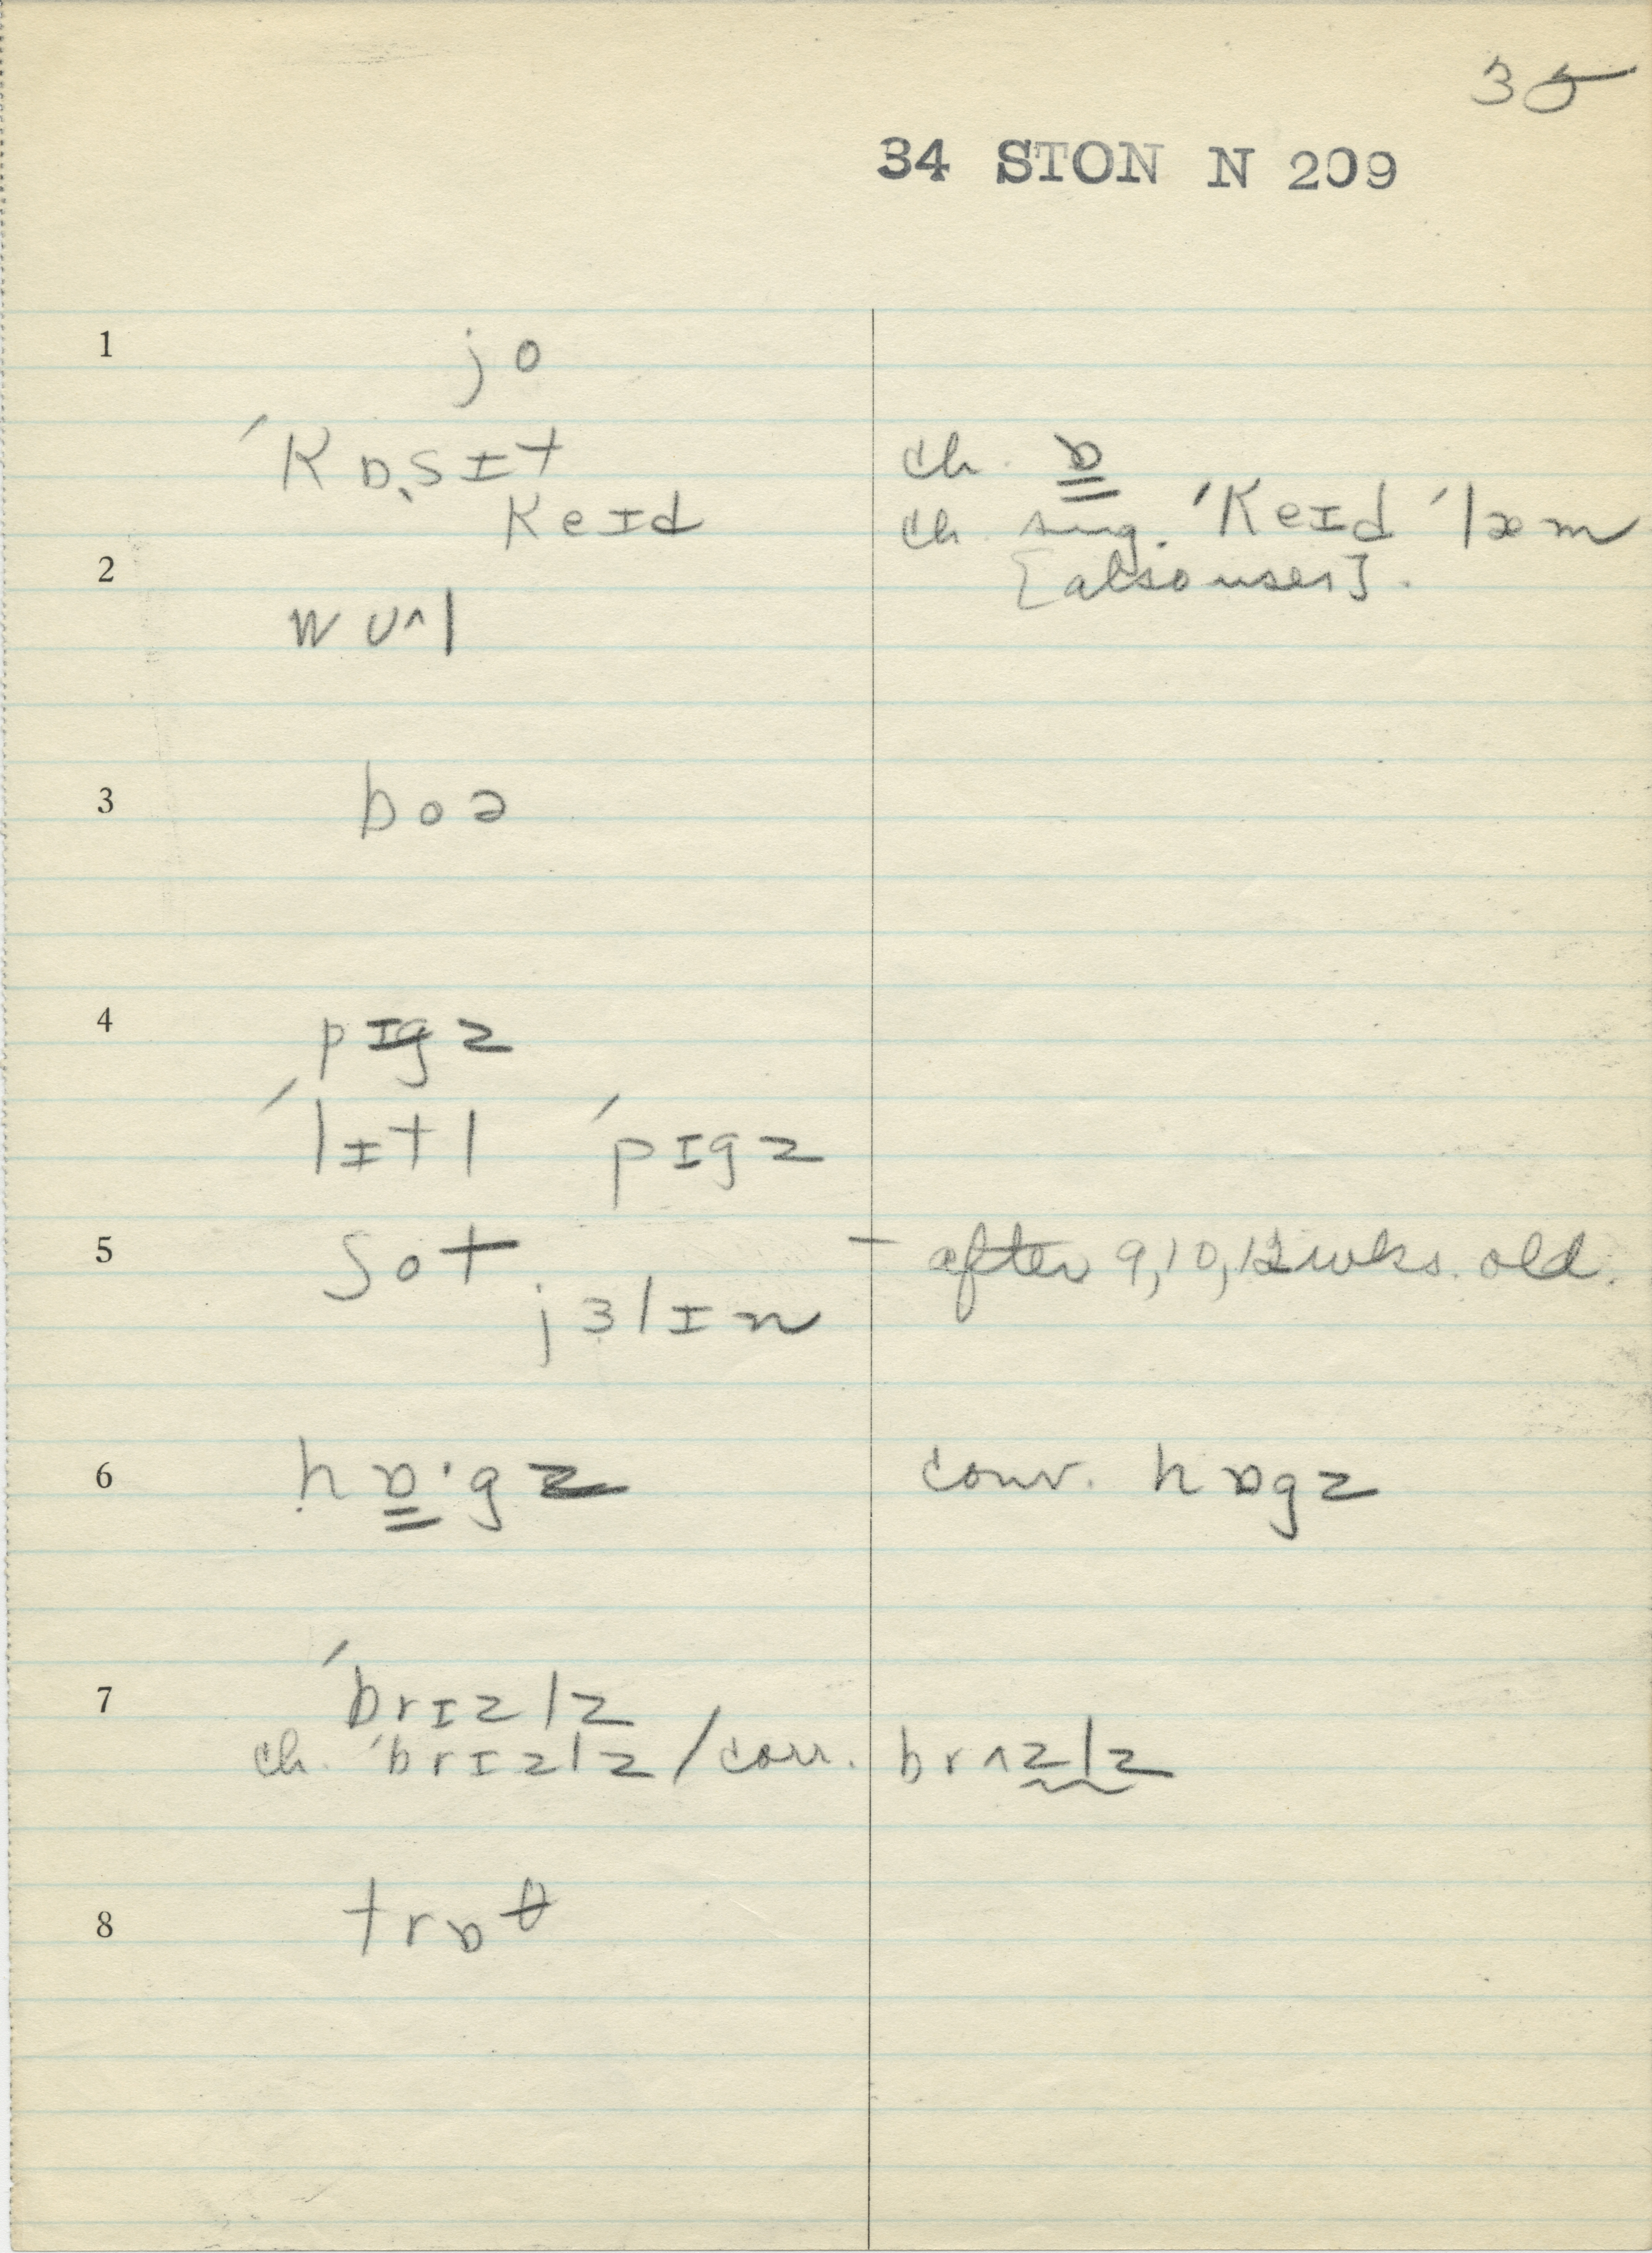 35
34 STON N 209
1 jo
ˈkɒˎsɪt ch. ɒ
keɪd ch. sing. ˈkeɪd ˈlæm
2 [also uses].
wʊ^l
3 boə
4 pɪgz
ˈlɪtl ˈpɪgz
5 ʃot — after 9, 10, 12 wks. old.
jɜlɪn
6 hɒ·gz conv. hɒgz
7 ˈbrɪzlz
ch. ˈbrɪzlz / corr. brʌzlz
8 trɒθ